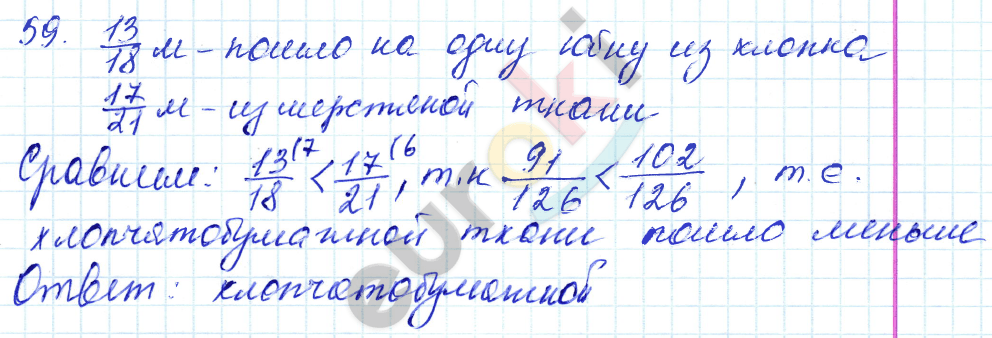 59. 13/18 м - пошло на одну юбку из хлопка
17/21 м - из шерстяной ткани
Сравним: 13/18 (7 < 17/21 (6, т.к 91/126 < 102/126, т.е.
хлопчатобумажной ткани пошло меньше
Ответ: хлопчатобумажной
euroki